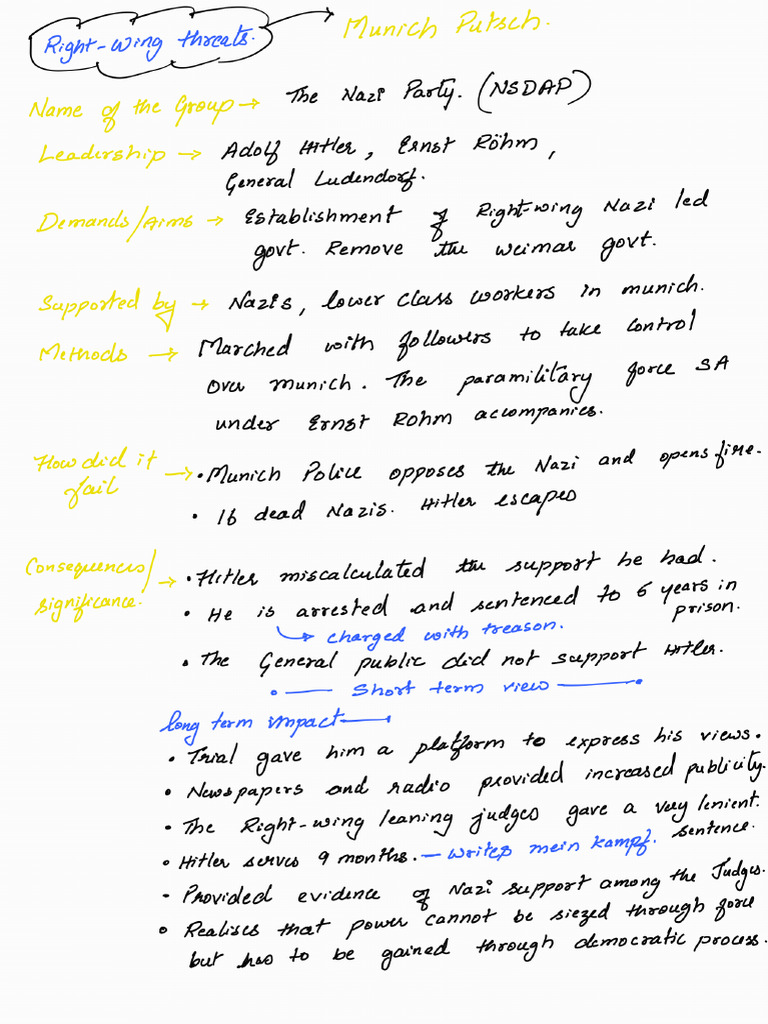 Right-wing threats. → Munich Putsch.
Name of the Group → The Nazi Party. (NSDAP)
Leadership → Adolf Hitler, Ernst Röhm,
General Ludendorf.
Demands/Aims → Establishment of Right-wing Nazi led
govt. Remove the weimar govt.
Supported by → Nazis, lower class workers in munich.
Methods → Marched with followers to take control
over munich. The paramilitary force SA
under Ernst Rohm accompanies.
How did it fail → • Munich Police opposes the Nazi and opens fire.
• 16 dead Nazis. Hitler escapes
Consequences/significance. → • Hitler miscalculated the support he had.
• He is arrested and sentenced to 5 years in prison.
↳ charged with treason.
• The General public did not support Hitler.
Short term view
long term impact
• Trial gave him a platform to express his views.
• Newspapers and radio provided increased publicity.
• The Right-wing leaning judges gave a very lenient sentence.
• Hitler serves 9 months. — writes mein kampf.
- Provided evidence of Nazi support among the Judges.
• Realises that power cannot be siezed through force
but has to be gained through democratic process.